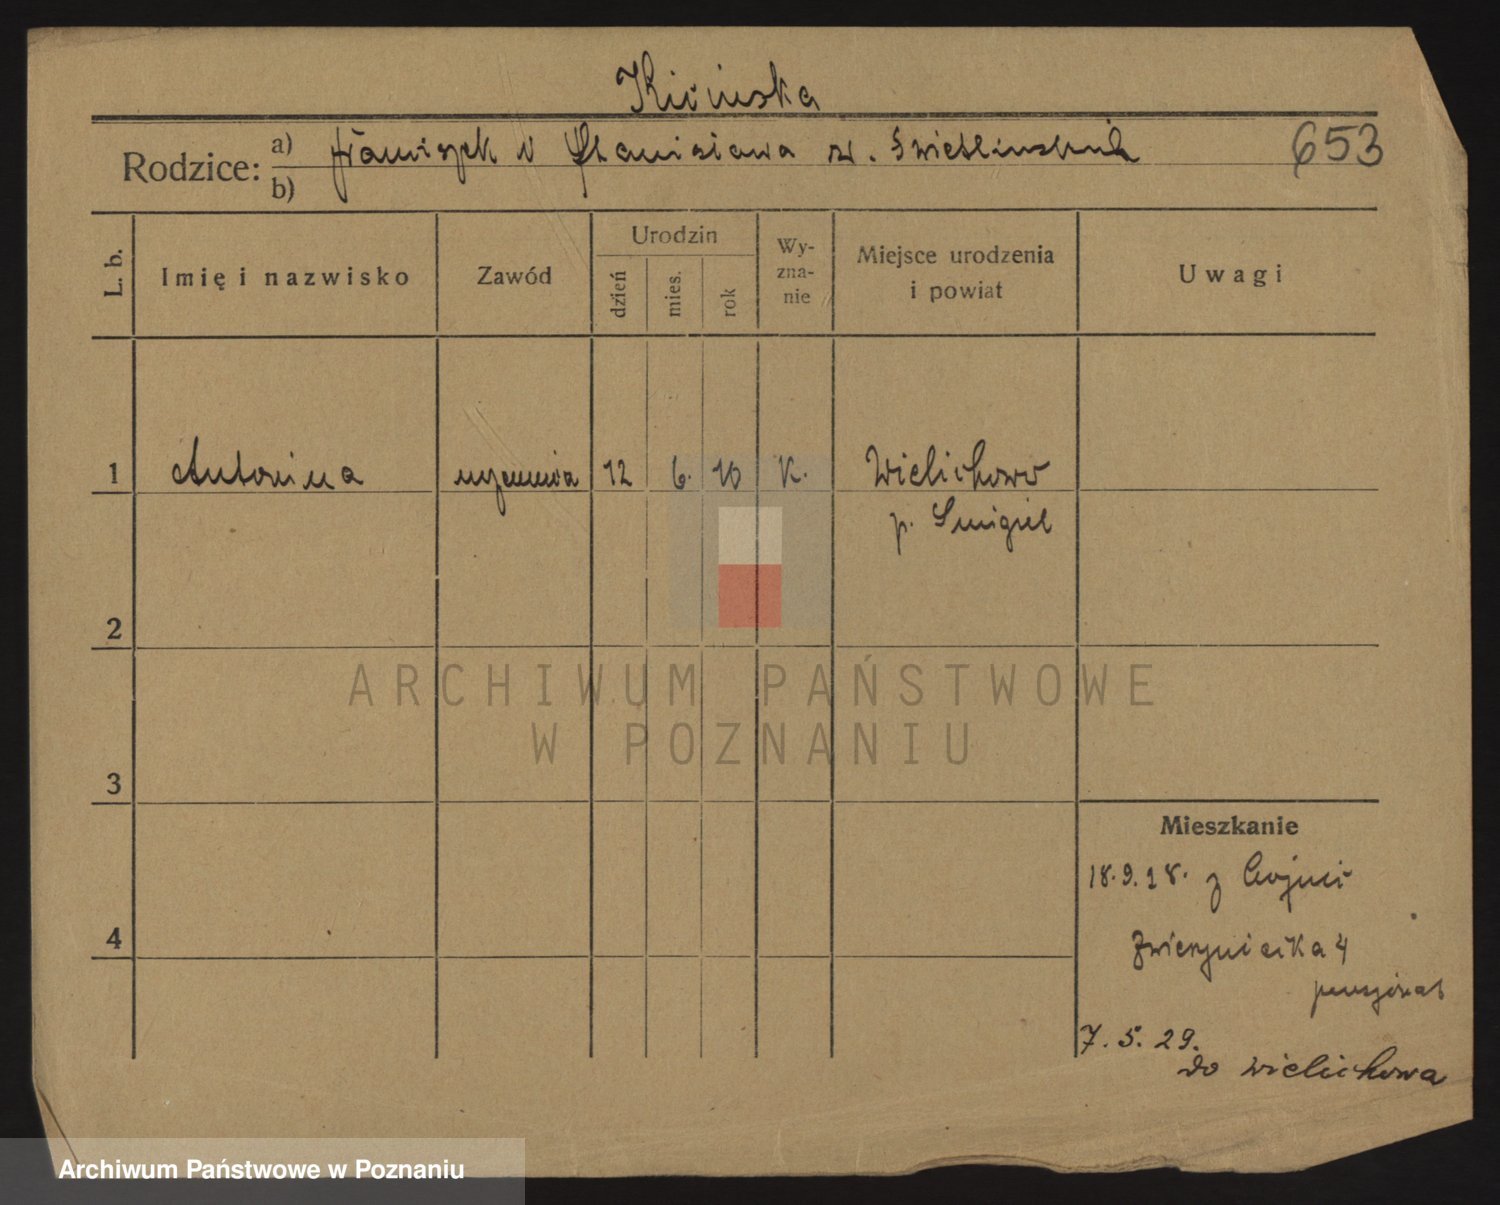 Kicinska
653
Rodzice: a) Franciszek i Stanisława z d. Świetlinskich
b)
L. b.
Imię i nazwisko
Zawód
Urodzin
dzień
mies.
rok
Wy-
zna-
nie
Miejsce urodzenia
i powiat
Uwagi
1 Antonina uczennica 12 6. 10 K. Wielichowo
p. Smigiel
2
ARCHIWUM PAŃSTWOWE
W POZNANIU
3
Mieszkanie
18.9.28. z
4
Zwierzyniecka 4
pensjonat
7. 5. 29.
do Wielichowa
Archiwum Państwowe w Poznaniu